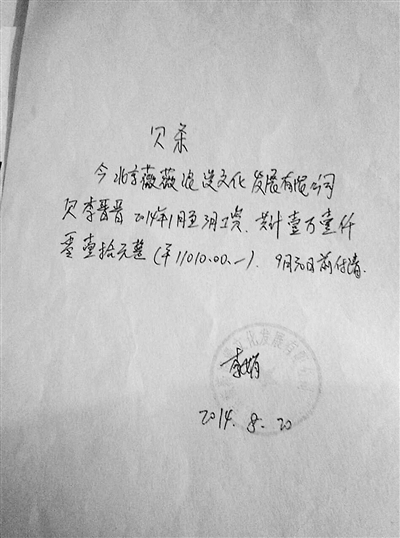 贝条
今北京薇薇浪漫文化发展有限公司
贝李晋晋2014年1月至3月工资.共计壹万壹仟
零壹拾元整(¥11010.00.—).9月30日前付清.
李娟
2014.8.20